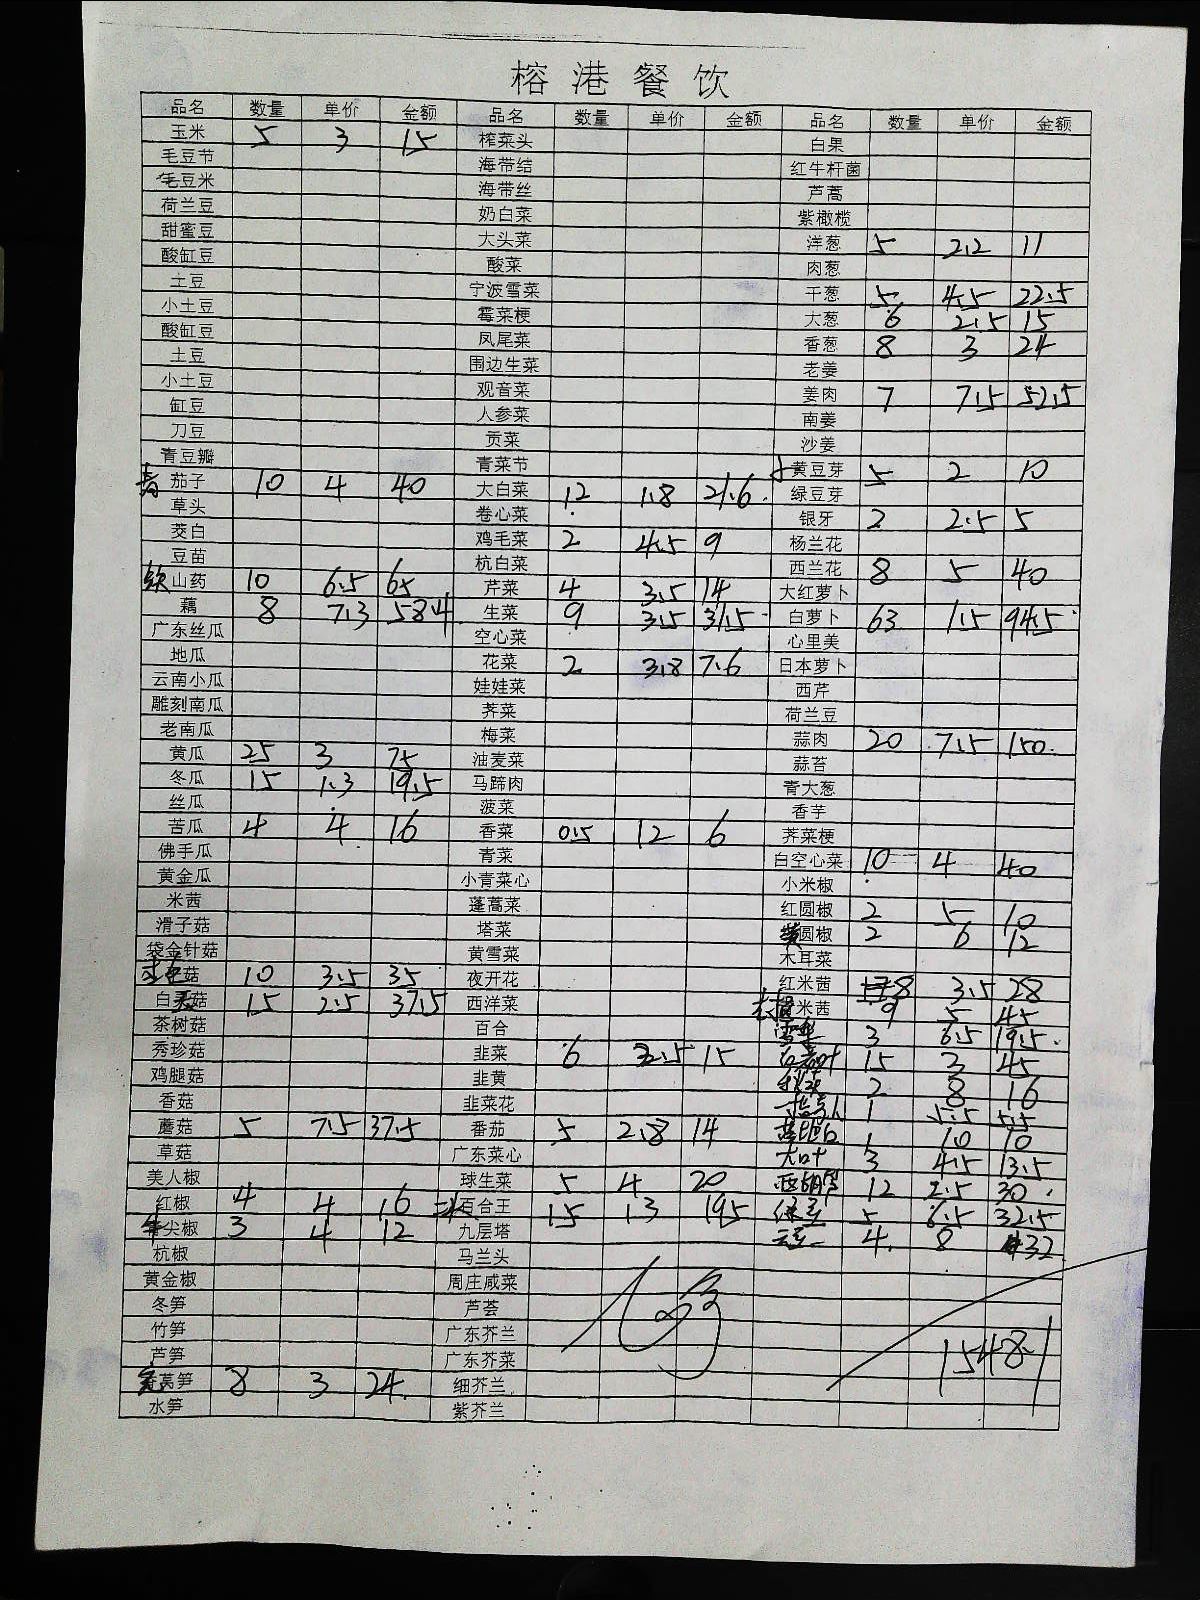 榕港餐饮
品名 数量 单价 金额 品名 数量 单价 金额 品名 数量 单价 金额
玉米 5 3 15 榨菜头 白果
毛豆节 海带结 红牛杆菌
毛豆米 海带丝 芦蒿
荷兰豆 奶白菜 紫橄榄
甜蜜豆 大头菜 洋葱 5 2.2 11
酸缸豆 酸菜 肉葱
土豆 宁波雪菜 干葱 5 4.5 22.5
小土豆 霉菜梗 大葱 6 2.5 15
酸缸豆 凤尾菜 香葱 8 3 24
土豆 围边生菜 老姜
小土豆 观音菜 姜肉 7 7.5 52.5
缸豆 人参菜 南姜
刀豆 贡菜 沙姜
青豆瓣 青菜节 黄豆芽 5 2 10
茄子 10 4 40 大白菜 12 1.8 21.6 绿豆芽
草头 卷心菜 银牙 2 2.5 5
茭白 鸡毛菜 2 4.5 9 杨兰花
豆苗 杭白菜 西兰花 8 5 40
铁山药 10 6.5 65 芹菜 4 3.5 14 大红萝卜
藕 8 7.3 58.4 生菜 9 3.5 31.5 白萝卜 63 1.5 94.5
广东丝瓜 空心菜 心里美
地瓜 花菜 2 3.8 7.6 日本萝卜
云南小瓜 娃娃菜 西芹
雕刻南瓜 荠菜 荷兰豆
老南瓜 梅菜 蒜肉 20 7.5 150
黄瓜 25 3 75 油麦菜 蒜苔
冬瓜 15 1.3 19.5 马蹄肉 青大葱
丝瓜 菠菜 香芋
苦瓜 4 4 16 香菜 0.5 12 6 荠菜梗
佛手瓜 青菜 白空心菜 10 4 40
黄金瓜 小青菜心 小米椒
米茜 蓬蒿菜 红圆椒 2 5 10
滑子菇 塔菜 黄圆椒 2 6 12
袋金针菇 黄雪菜 木耳菜
菇 10 3.5 35 夜开花 红米茜 8 3.5 28
白玉菇 15 2.5 37.5 西洋菜 米茜 9 5 45
茶树菇 百合 3 6.5 19.5
秀珍菇 韭菜 6 2.5 15 15 3 45
鸡腿菇 韭黄 2 8 16
香菇 韭菜花 1 5.5 5.5
蘑菇 5 7.5 37.5 番茄 5 2.8 14 1 10 10
草菇 广东菜心 大叶 3 4.5 13.5
美人椒 球生菜 5 4 20 西胡芦 12 2.5 30
红椒 4 4 16 百合王 15 1.3 19.5 绿豆 5 6.5 32.5
尖椒 3 4 12 九层塔 云豆 4 8 32
杭椒 马兰头
黄金椒 周庄咸菜
冬笋 芦荟
竹笋 广东芥兰 1548.1
芦笋 广东芥菜
莴笋 8 3 24 细芥兰
水笋 紫芥兰